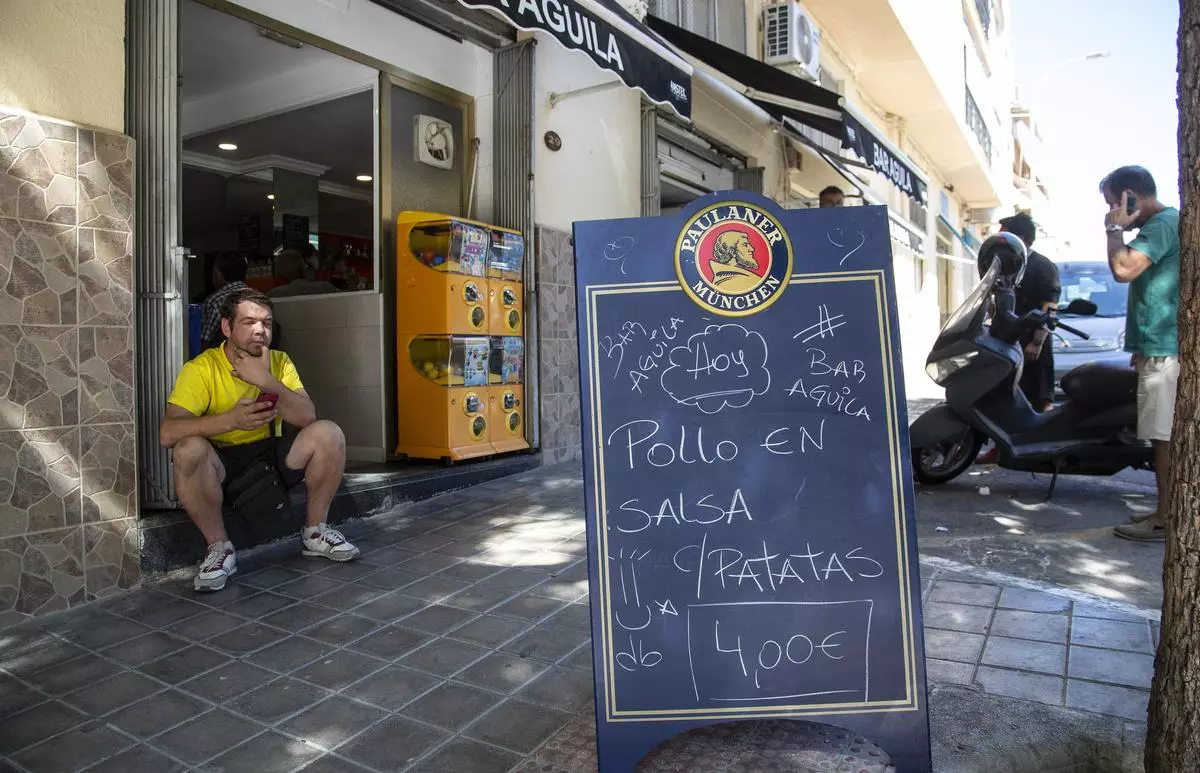 BAR AGUILA
Amstel
BAR AGUILA
29
PAULANER
MÜNCHEN
BAR
AGUILA
Hoy
#
BAR
AGUILA
Pollo EN
SALSA
C/PATATAS
4,00€